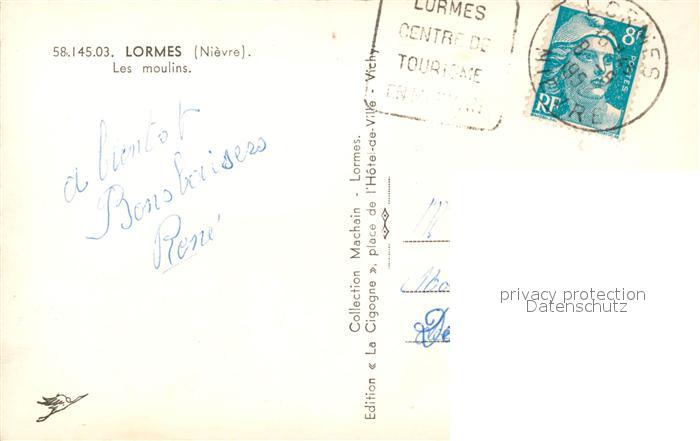 58.145.03. LORMES (Nièvre).
Les moulins.
a bientot
Bons baisers
René
Collection Machain - Lormes.
Edition « La Cigogne », place de l'Hôtel-de-Ville - Vichy.
LORMES
CENTRE DE
TOURISME
EN
LORMES
NIEVRE
8F
POSTES
RF
M
privacy protection
Datenschutz